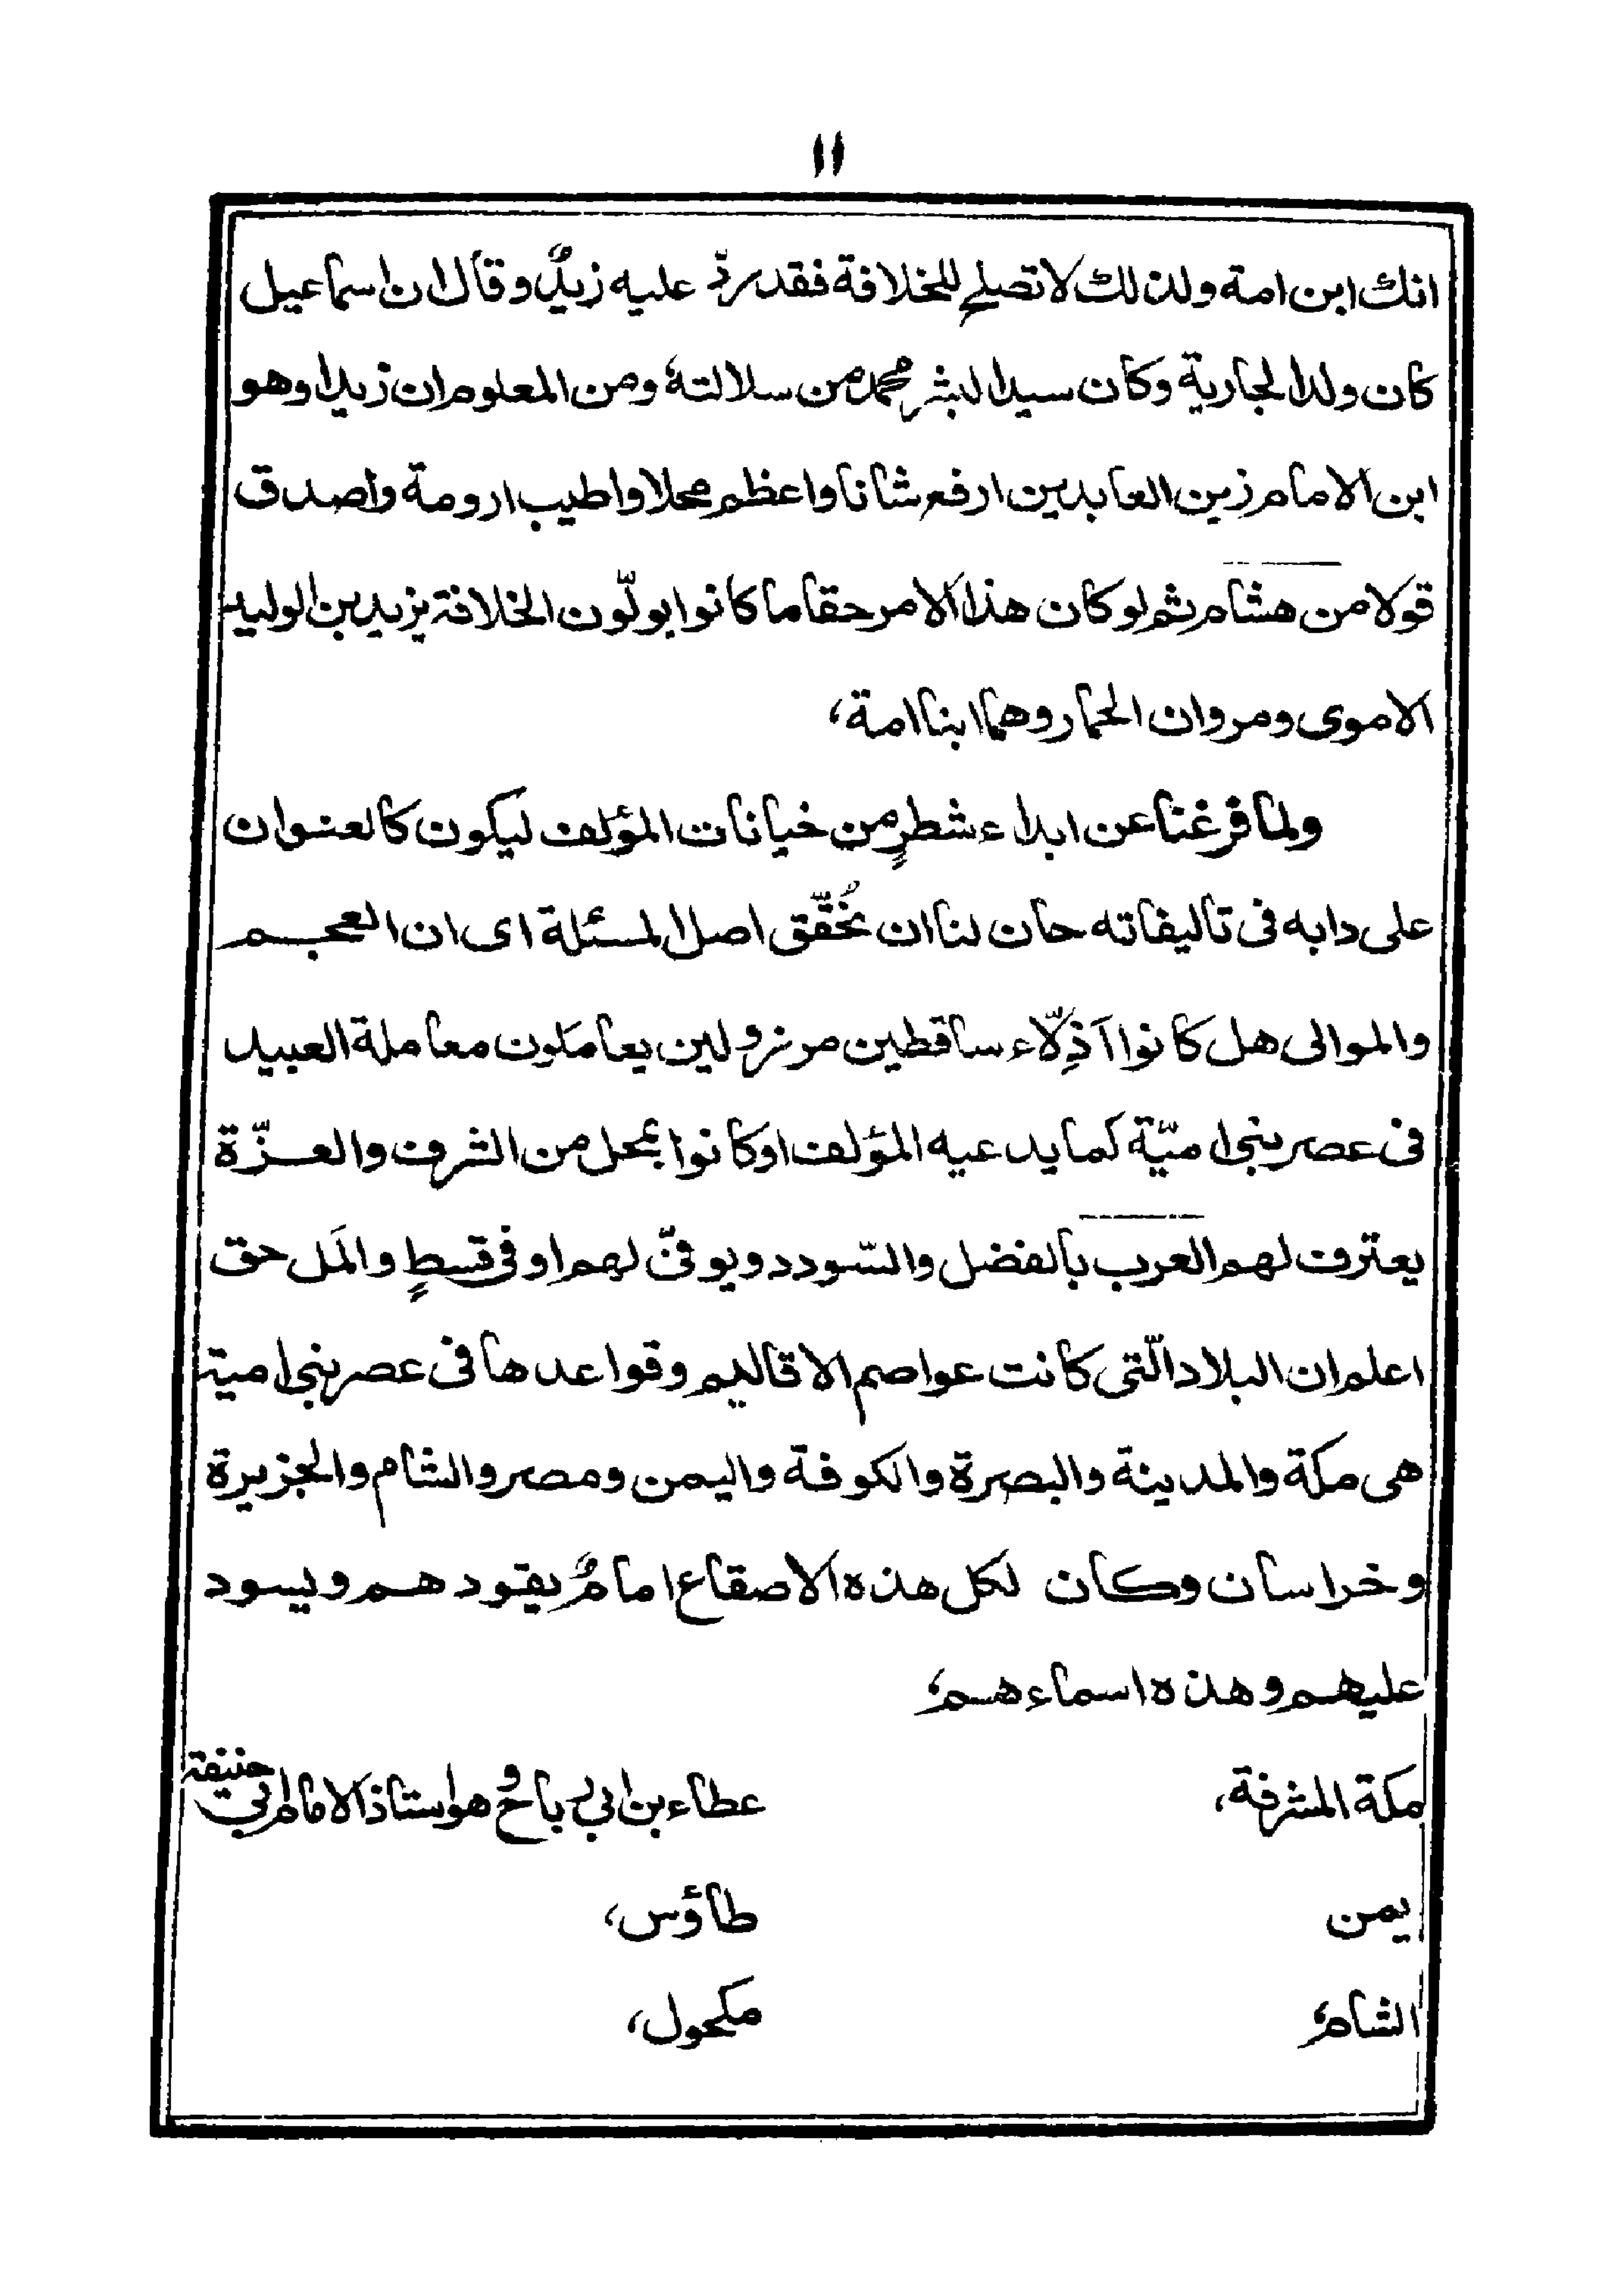 ١١
انك ابن امة ولذلك لا تصلح للخلافة فقد ردّ عليه زيدٌ وقال ان اسماعيل
كان ولدا لجارية وكان سيد البشر محمد من سلالته، ومن المعلوم ان زيدا وهو
ابن الامام زين العابدين ارفع شانا واعظم محلا واطيب ارومة واصدق
قولا من هشام ثم لو كان هذا الامر حقا ما كانوا يولّون الخلافة يزيد بن الوليد
الاموى ومروان الحمار وهما ابنا امة،
ولما فرغنا عن ابداء شطرٍ من خيانات المؤلف ليكون كالعنوان
على دابه فى تاليفاته حان لنا ان نُحقّق اصل المسئلة اى ان العجم
والموالى هل كانوا اذِلّاء ساقطين مرزولين يعاملون معاملة العبيد
فى عصر بنى اميّة كما يدعيه المؤلف او كانوا بمحل من الشرف والعزّة
يعترف لهم العرب بالفضل والسّودد ويوفىّ لهم اوفى قسطٍ والمَل حق
اعلم ان البلاد الّتى كانت عواصم الاقاليم وقواعدها فى عصر بنى امية
هى مكة والمدينة والبصرة والكوفة واليمن ومصر والشام والجزيرة
وخراسان وكان لكل هذه الاصقاع امامٌ يقودهم ويسود
عليهم وهذه اسماءهم،
مكة المشرفة، عطاء بن ابى رباح وهو استاذ الامام ابى حنيفة
يمن طاؤس،
الشام، مكحول،